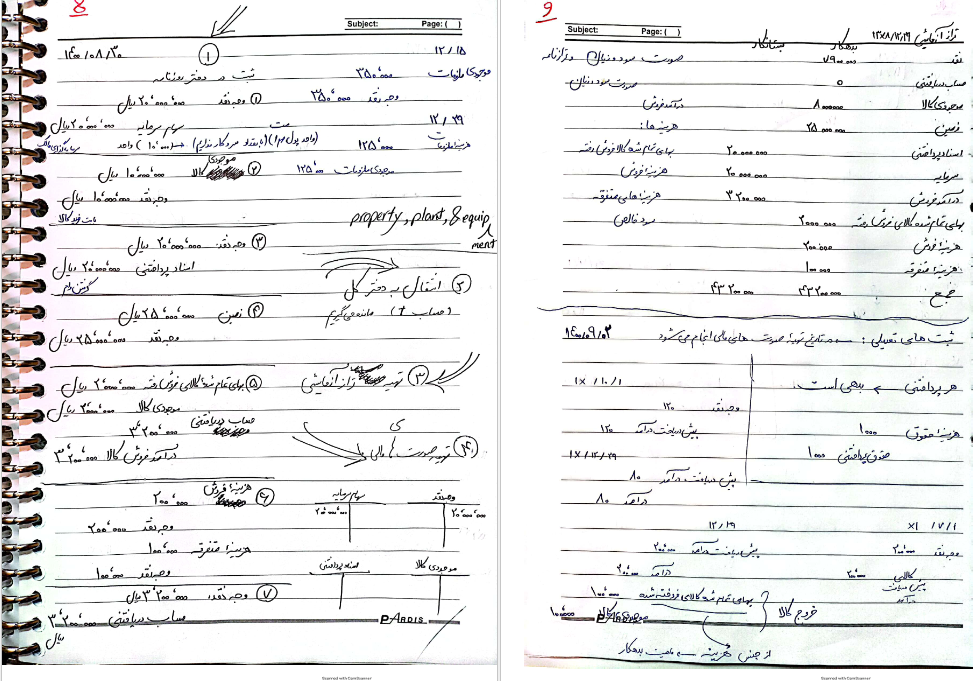 8
Subject:
Page: ( )
۱۴۰۰/۰۸/۳۰
①
ثبت در دفتر روزنامه
① وجه نقد ۲۰٬۰۰۰٬۰۰۰ ریال
سهام سرمایه ۲۰٬۰۰۰٬۰۰۰ ریال
② موجودی کالا ۱۰٬۰۰۰٬۰۰۰ ریال
وجه نقد ۱۰٬۰۰۰٬۰۰۰ ریال
بابت خرید کالا
③ وجه نقد ۲۰٬۰۰۰٬۰۰۰ ریال
اسناد پرداختنی ۲۰٬۰۰۰٬۰۰۰ ریال
گرفتن وام
④ زمین ۲۵٬۰۰۰٬۰۰۰ ریال
وجه نقد ۲۵٬۰۰۰٬۰۰۰ ریال
⑤ بهای تمام شده کالای فروش رفته ۲٬۰۰۰٬۰۰۰ ریال
موجودی کالا ۲٬۰۰۰٬۰۰۰ ریال
حساب دریافتنی ۳٬۲۰۰٬۰۰۰
درآمد فروش کالا ۳٬۲۰۰٬۰۰۰
⑥ هزینه فروش ۲۰۰٬۰۰۰
وجه نقد ۲۰۰٬۰۰۰
هزینه متفرقه ۱۰۰٬۰۰۰
وجه نقد ۱۰۰٬۰۰۰
⑦ وجه نقد ۳٬۲۰۰٬۰۰۰ ریال
حساب دریافتنی ۳٬۲۰۰٬۰۰۰
ریال
۱۲/۱۵
موجودی ملزومات ۳۵۰٬۰۰۰
وجه نقد ۳۵۰٬۰۰۰
۱۲/۲۹
هزینه ملزومات ۱۲۵٬۰۰۰
موجودی ملزومات ۱۲۵٬۰۰۰
property, plant, & equip
ment
② انتقال به دفتر کل
(حساب T) مانده می‌گیریم
③ تهیه تراز آزمایشی
④ تهیه صورت های مالی
وجه نقد
سهام سرمایه
۲۰٬۰۰۰٬۰۰۰
۲۰٬۰۰۰٬۰۰۰
موجودی کالا
اسناد پرداختنی
PARDIS
Scanned with CamScanner
9
Subject:
Page: ( )
تراز آزمایشی ۱۳x۸/۱۲/۲۹
بدهکار
بستانکار
نقد ۷۹۰۰۰۰۰
حساب دریافتنی ۰
موجودی کالا ۸۰۰۰۰۰۰
زمین ۲۵۰۰۰۰۰۰
اسناد پرداختنی ۲۰۰۰۰۰۰۰
سرمایه ۲۰۰۰۰۰۰۰
درآمد فروش ۳۲۰۰۰۰۰
بهای تمام شده کالای فروش رفته ۲۰۰۰۰۰۰
هزینه فروش ۲۰۰۰۰۰
هزینه متفرقه ۱۰۰۰۰۰
جمع ۴۳۲۰۰۰۰۰ ۴۳۲۰۰۰۰۰
صورت سود و زیان
درآمد فروش
هزینه ها:
بهای تمام شده کالا فروش رفته
هزینه فروش
هزینه های متفرقه
سود خالص
۱۴۰۰/۰۹/۰۳
ثبت های تعدیلی: در تاریخ تهیه صورت های مالی انجام می شود
هر پرداختنی بدهی است.
هزینه حقوق ۱۰۰۰
حقوق پرداختنی ۱۰۰۰
۱x/۱۰/۱
وجه نقد ۱۲۰
پیش دریافت درآمد ۱۲۰
۱x/۱۲/۲۹
پیش دریافت درآمد ۸۰
درآمد ۸۰
x۱/۷/۱
وجه نقد ۲۰۰۰۰۰
پیش دریافت درآمد ۲۰۰۰۰۰
۱۲/۲۹
پیش دریافت درآمد ۲۰۰۰۰۰
درآمد ۲۰۰۰۰۰
بهای تمام شده کالای فروخته شده ۱۰۰۰۰۰
موجودی کالا ۱۰۰۰۰۰
خروج کالا
PARDIS
از جنس هزینه ماهیت بدهکار
Scanned with CamScanner